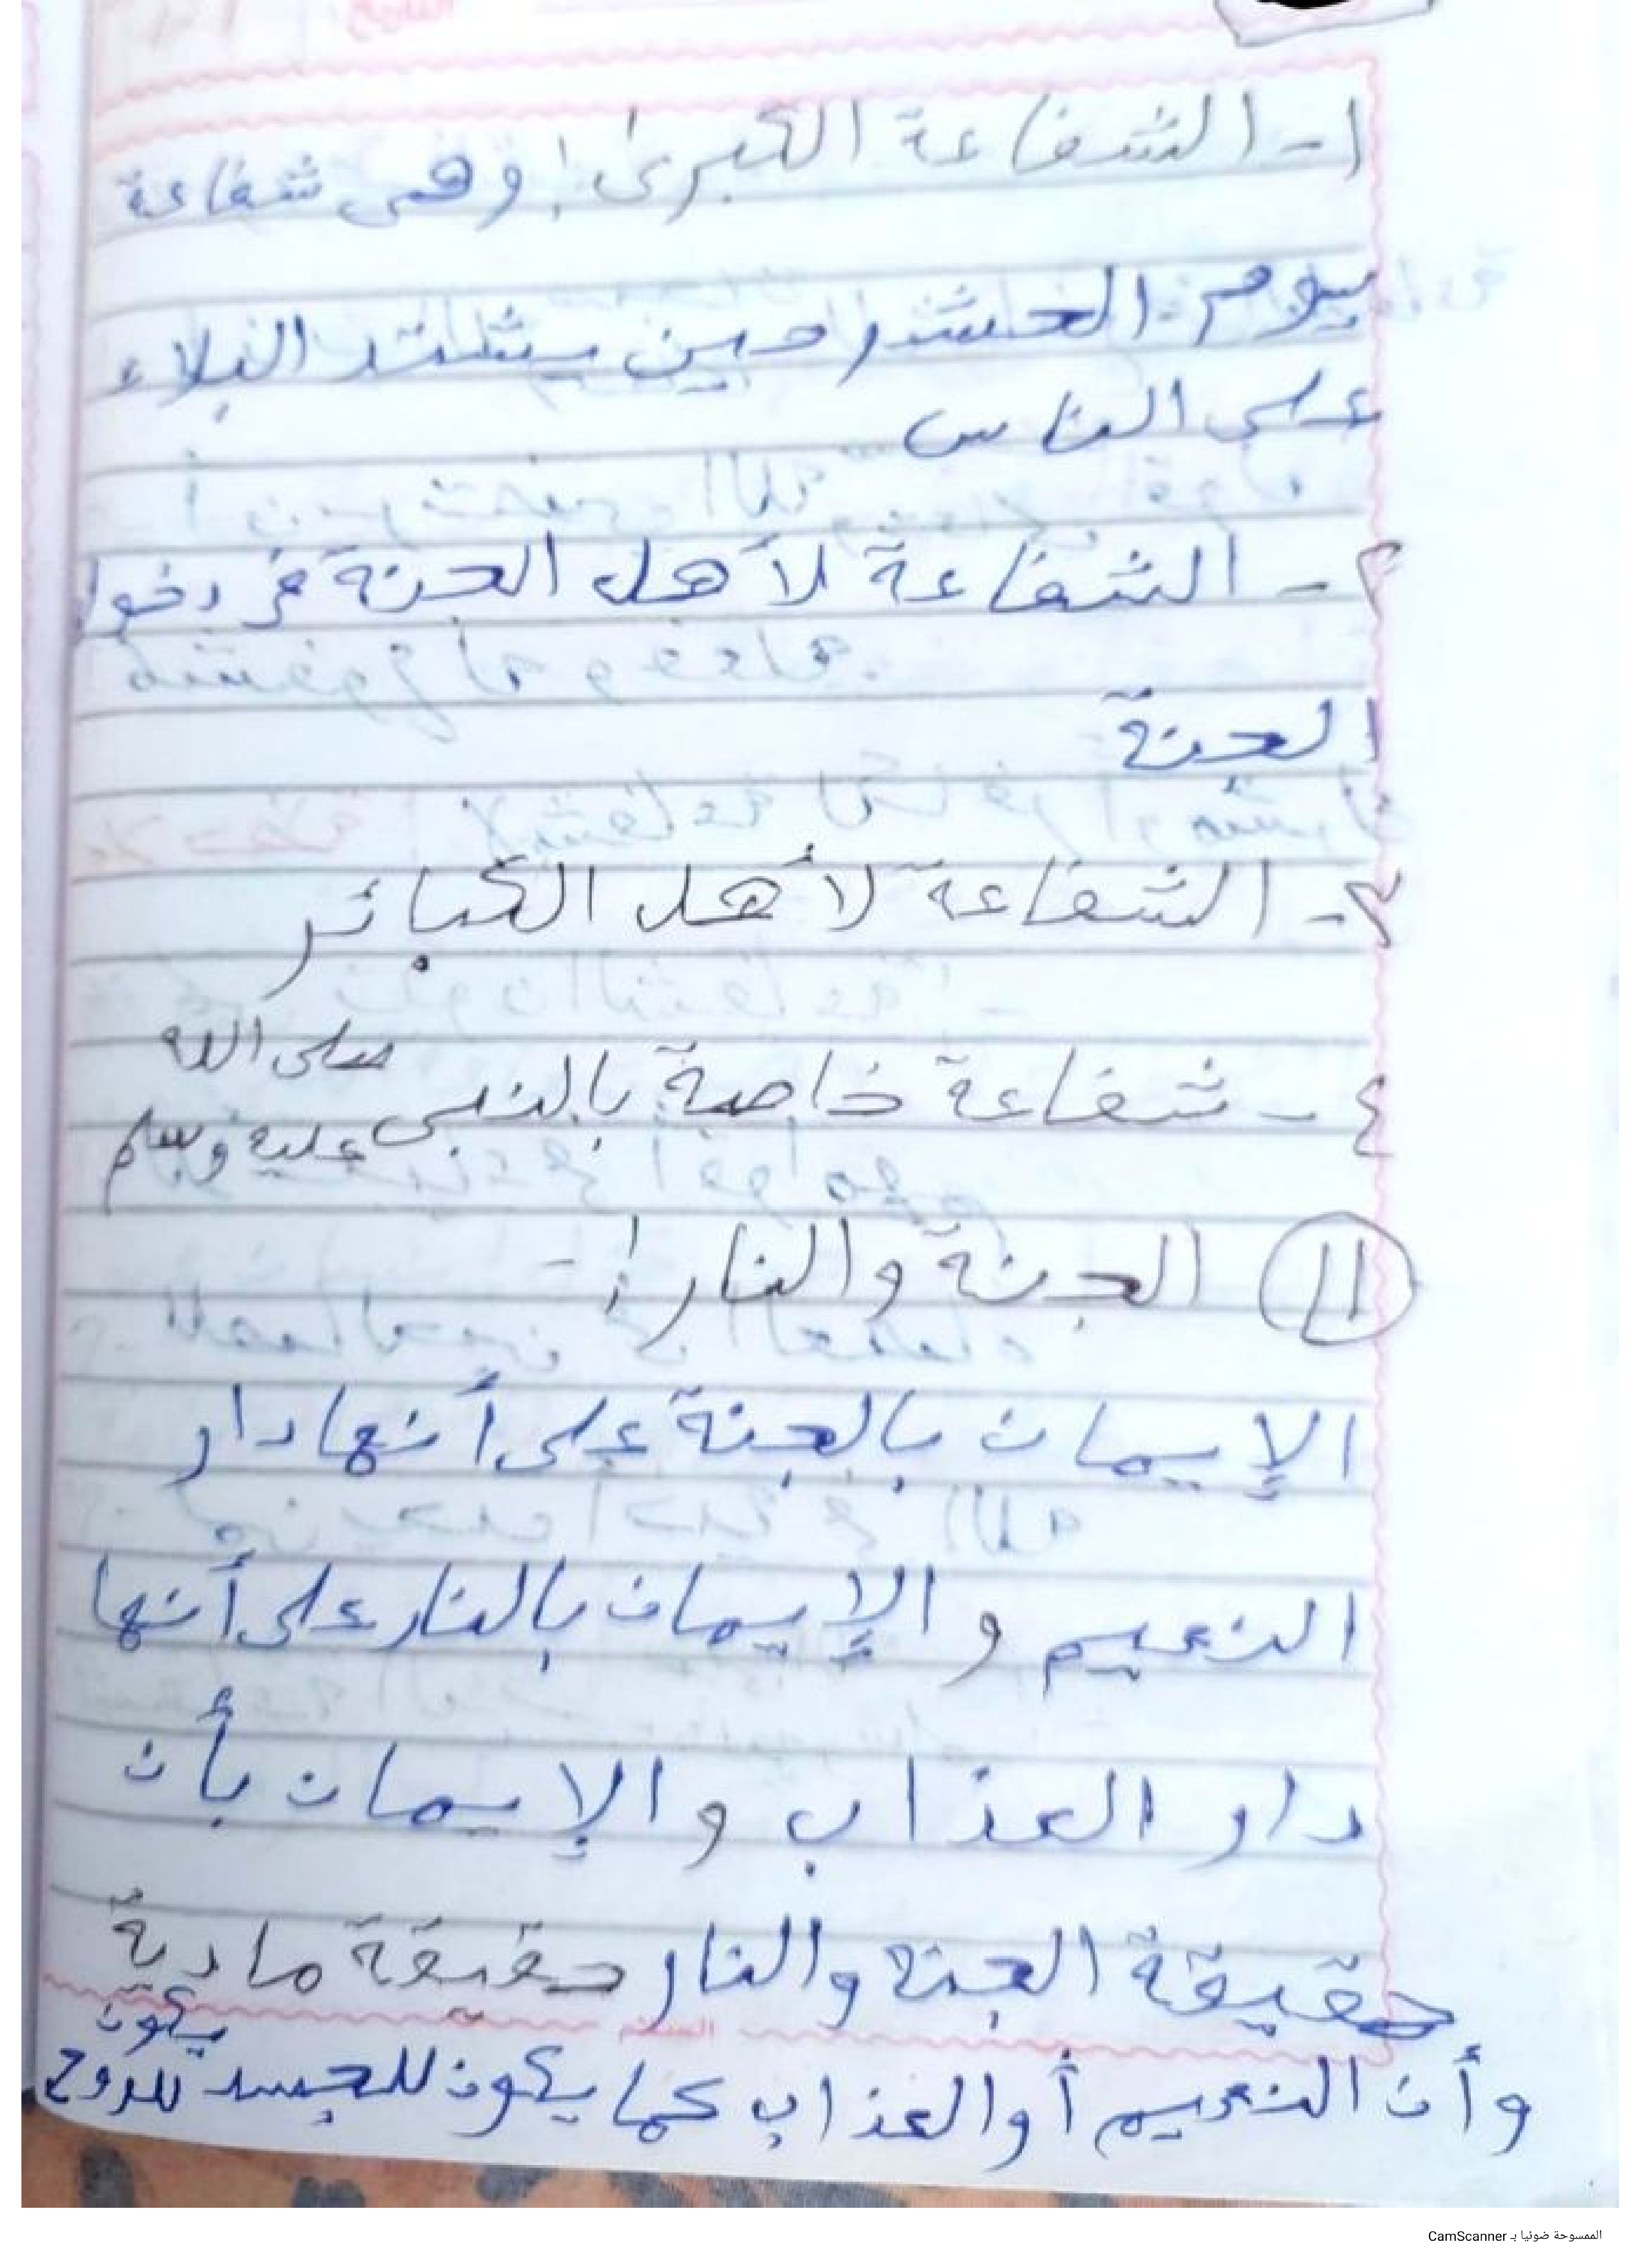 ١- الشفاعة الكبرى: وهى شفاعة
يوم الحشر حين يشتد البلاء
على الناس
٢- الشفاعة لأهل الجنة فى دخول
الجنة
٣- الشفاعة لأهل الكبائر
٤- شفاعة خاصة بالنبى صلى الله
عليه وسلم
١١ الجنة والنار:-
الإيمان بالجنة على أنها دار
النعيم والإيمان بالنار على أنها
دار العذاب والإيمان بأن
حقيقة الجنة والنار حقيقة مادية
وأن النعيم أو العذاب كما يكون للجسد يكون للروح
الممسوحة ضوئيا بـ CamScanner